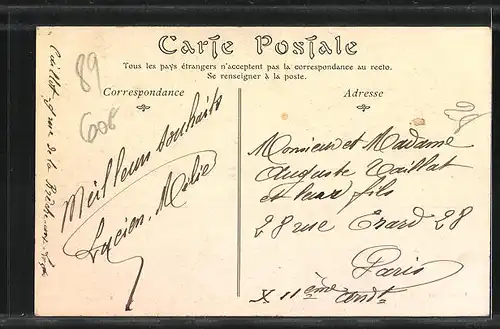 Carte Postale
Tous les pays étrangers n'acceptent pas la correspondance au recto.
Se renseigner à la poste.
Correspondance
Adresse
89
606
rue de la
Meilleurs souhaits
Lucien.
Monsieur et Madame
Auguste Vaillat
et leur fils
28 rue Erard 28
Paris
X 11ème Arrdt